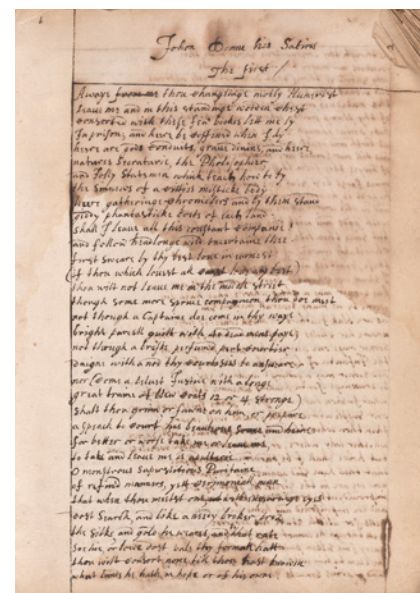 John Donne his Satires
The first /
Away from me thou changlinge motly Humorist
Leaue me and in this standinge wooden chest
consorted with these few bookes lett me ly
In prison, and here be coffind when I dy
here are gods conduits, graue diuines, and here
natures Secretarie, the Philosopher
and Jolly Statesmen which teach how to ty
the Sinnews of a citties misticke body
here gatheringe chroniclers and by them stand
giddy phantasticke Poets of each land.
shall I leaue all this constant company
and follow headlonge wild uncertaine thee
first sweare by thy best loue in earnest
(if thou which louest all canst loue any best)
thou wilt not leaue me in the middle street
though some more spruce companion thou dos meet
not though a Captaine dos come in thy way
bright parcell guilt with dead mens pay
not though a briske perfumd pert courtier
deigns with a nod thy courtesies to answere
nor come a veluet Justice with a longe
great traine of blew coats 12 or 14 stronge)
shalt thou grinn or fawne on him, or prepare
a speach to court his beautious sonne and heire
for better or worse take me or leaue me
to take and leaue me is
O monstrous Superstitious Puritane
of refind manners, yett ceremonial man
that when thou meetst one
dost Search, and like a needy broker
the silke and gold he weares, and to that rate
So hie or lowe dost vale thy formall hatt
thou wilt consort none till thou hast knowen
what lands he hath in hope or of his owne